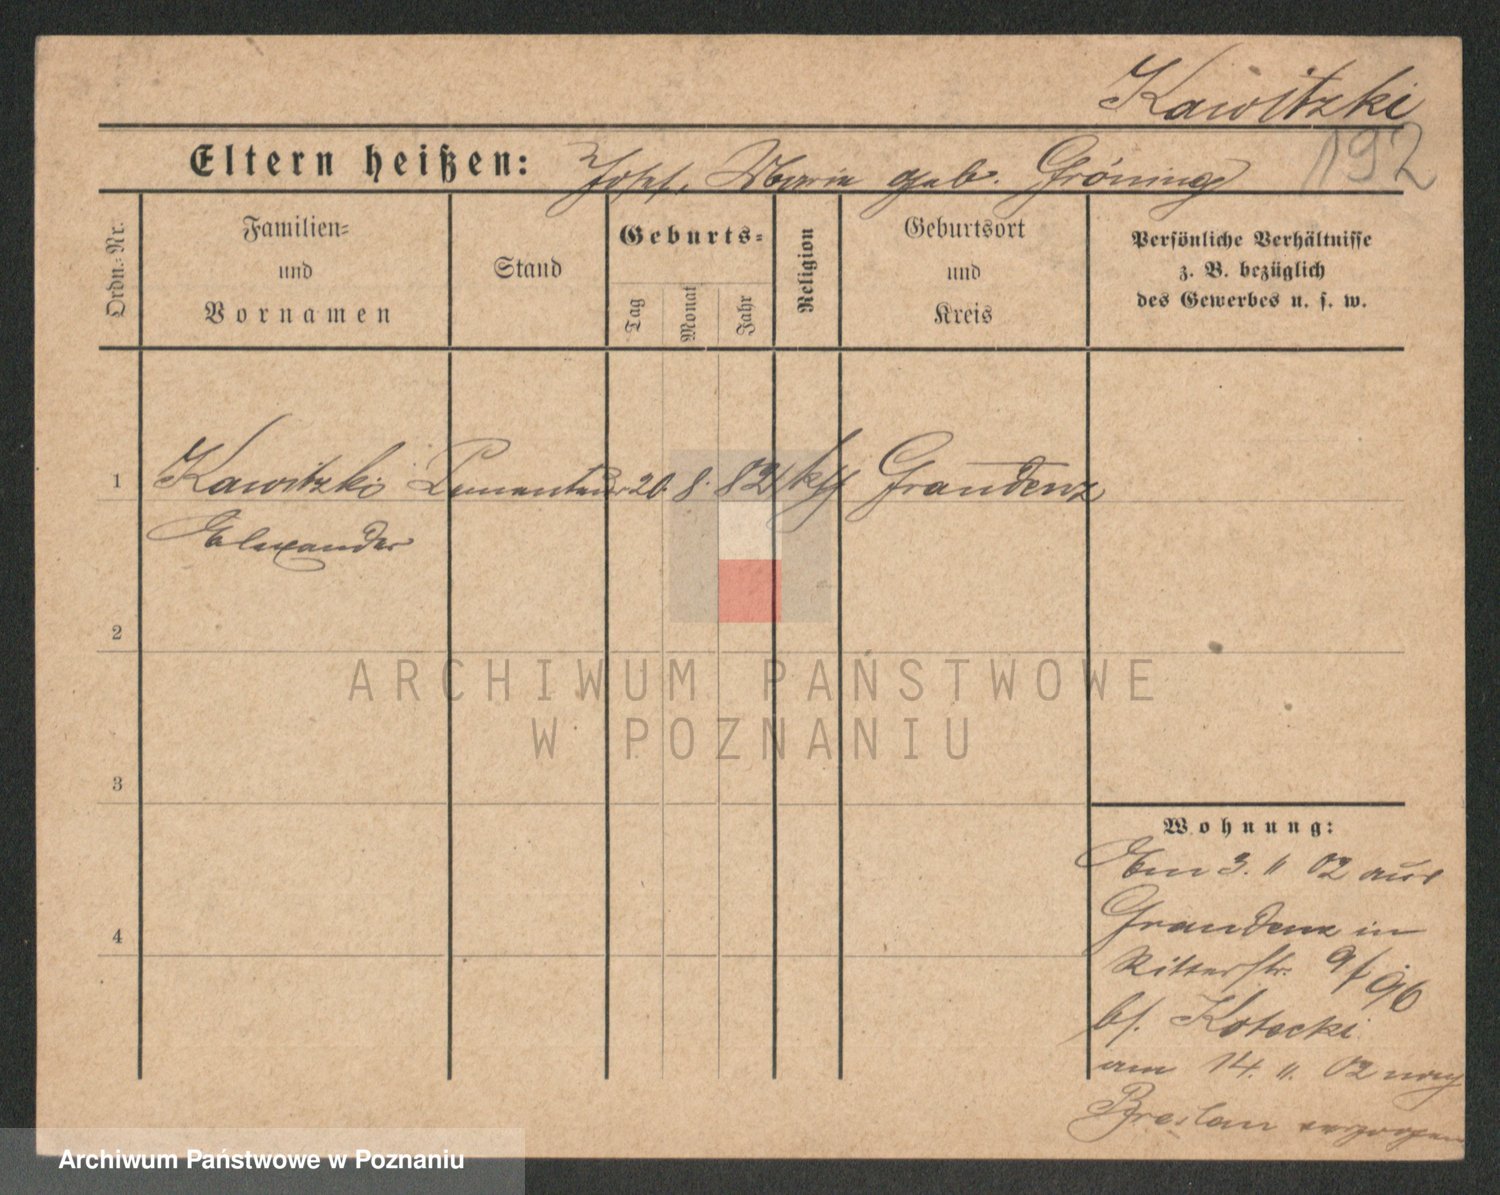 Kawitzki
192
Eltern heißen: Josef, Marie geb. Gröning
Ordn.-Nr.
Familien-
und
Vornamen
Stand
Geburts-
Tag
Monat
Jahr
Religion
Geburtsort
und
Kreis
Persönliche Verhältnisse
z. B. bezüglich
des Gewerbes u. s. w.
1 Kawitzki 20. 8. 82 kth Graudenz
Alexander
2
3
4
Wohnung:
Am 3. 11 02 aus
Graudenz in
Ritterstr.
bei Kotecki
am 14. 11. 02 nach
Breslau verzogen
ARCHIWUM PAŃSTWOWE
W POZNANIU
Archiwum Państwowe w Poznaniu